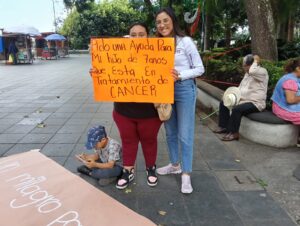 Pido una Ayuda Para
Mi hija de 7anos
que Esta En
Tratamiento de
CANCER
milagro Po